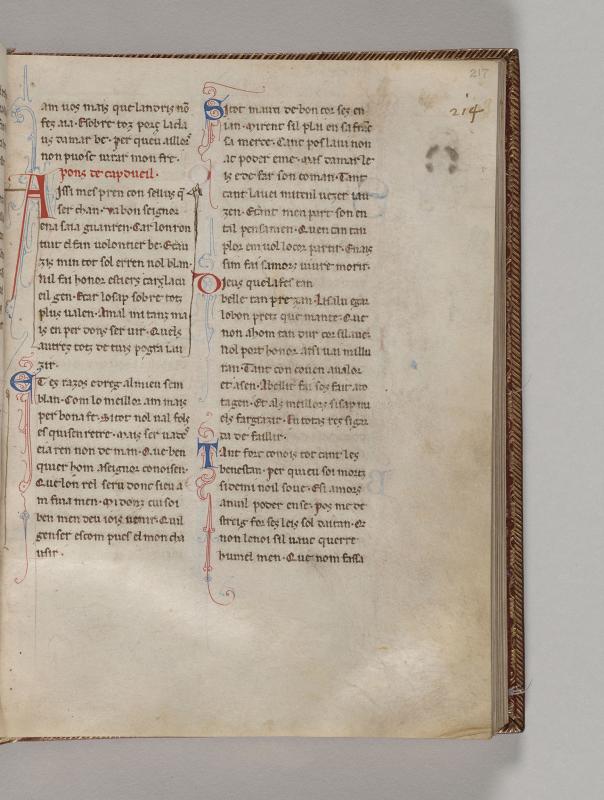 217
214
am uos mais que landris nō
fez aia. Esobre toz
us damar be. per queu aillors
non puosc uirar mon fre.
pons de capdueil.
Aissi mes pren con sellui q̄
ser chan. ua bon seignor
tuit el fan uolontier be.
zis min tot sol erren nol blan.
Nil fai honor estiers
eil gen. Etar lo sap sobre totz
plus ualen. Amal mi tanz ma
is en per dons seruir. Quels
autres totz de tuis
zir.
ET es razos edreg almieu sem
blan. Com lo meillor am mais
per bona fe. Si tot nol ual fols
es qui sen retre. mais ser
cia ren non de man. Que ben
quier hom a seignor conoisen.
Que lon rei seru donc sieu a
m fina men. Mi donz cui soi
ben men deu iois uenir. Quil
genser es com pues el mon cha
usir.
Sitot mautz de bon cor ses en
ian. Miren sil plai en sa frāc
sa merce. Canc pos laui non
ac poder en me. mas damar le
is e de far son coman. Tant
cant lauei mi tenl uezer iau
zen. Ecant men part son en
tal pensamen. Quen can tan
plor em uol locor partir. Enais
sim fai samors uiure morir.
Dieus que la fes tan
belle tan prezan. Li salu
lo bon pretz que mante. Que
non a hom tan dur cor sil aue.
Nol port honor
ran. Tant con couen aualor
et a sen. Abellir fai sos fait
tagen. Et als meillors si
els far grazir. En totas res si
da de faillir.
Tant fort conois tot cant les
benestan. per quieu soi mortz
si de mi noil soue. Esi amors
anuil poder en se. pos me de
streig for ses leis sol daitan. Er
non lenoi sil uauc querre
humel men. Que nom fassa